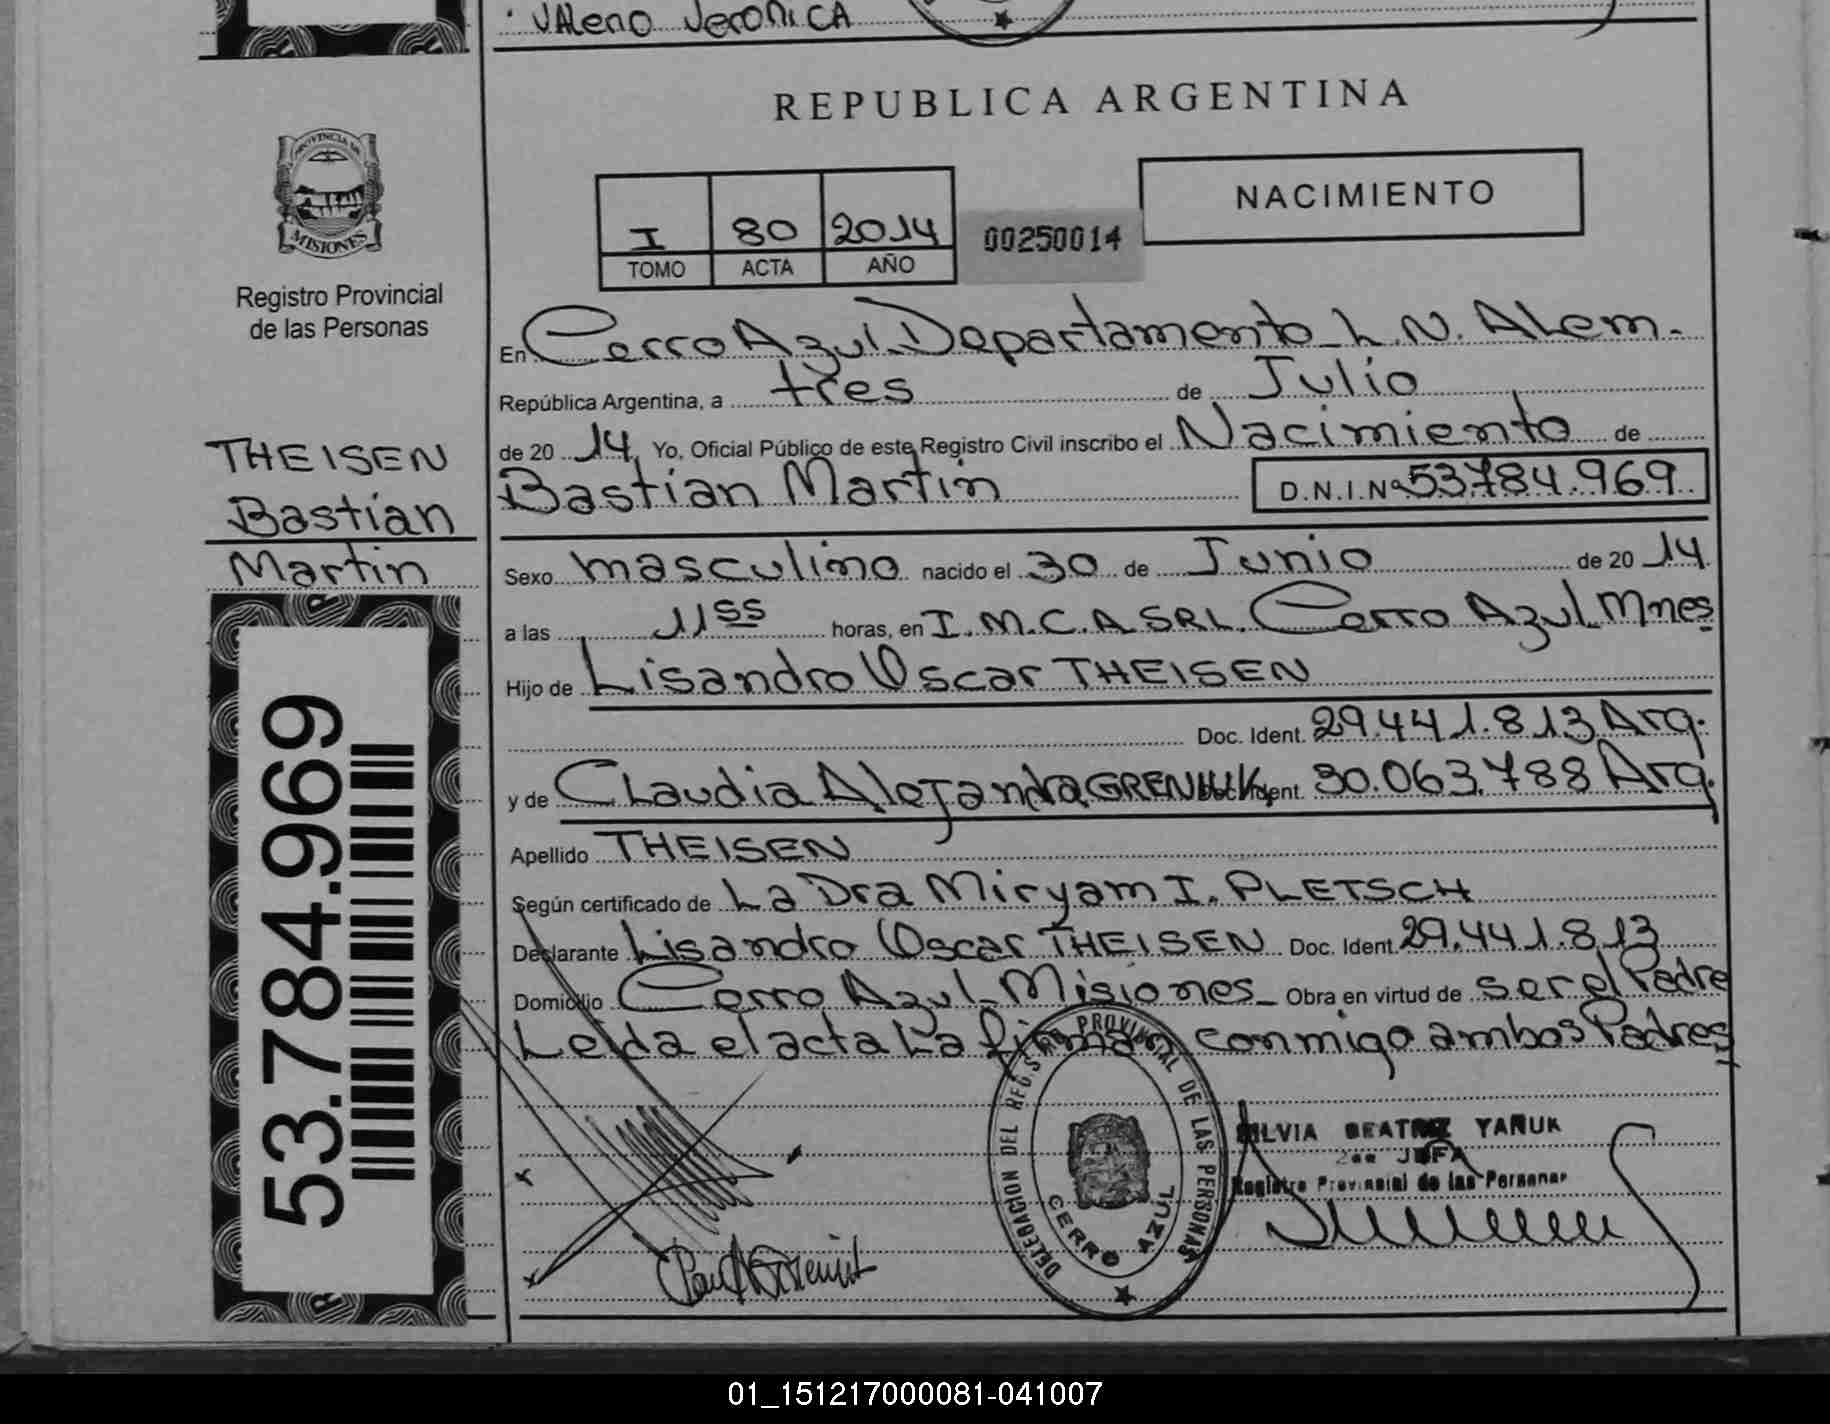 VALerio VeroniCA
REPUBLICA ARGENTINA
PROVINCIA DE
MISIONES
Registro Provincial
de las Personas
NACIMIENTO
I 80 2014 00250014
TOMO ACTA AÑO
En Cerro Azul. Departamento L. N. ALem.
República Argentina, a tres de Julio
de 20 14. Yo, Oficial Público de este Registro Civil inscribo el Nacimiento de
Bastian Martin D.N.I.Nº 53784.969
THEISEN
Bastian
Martin
Sexo masculino nacido el 30 de Junio de 20 14.
a las 11 55 horas, en I.M.C.A SRL. Cerro Azul Mnes
Hijo de Lisandro Oscar THEISEN
Doc. Ident. 29.441.813 Arg.
y de CLaudia Alejandra GRENIUK Doc. Ident. 30.063.788 Arg.
Apellido THEISEN
Según certificado de La Dra Miryam I. PLETSCH
Declarante Lisandro Oscar THEISEN Doc. Ident. 29.441.813
Domicilio Cerro Azul-Misiones_ Obra en virtud de ser el Padre
Leida el acta La firman conmigo ambos Padres
53.784.969
DELEGACION DEL REG.STRO PROVINCIAL DE LAS PERSONAS
CERRO AZUL
SILVIA BEATRIZ YAÑUK
2da JEFA
Registro Provincial de las Personas
01_151217000081-041007